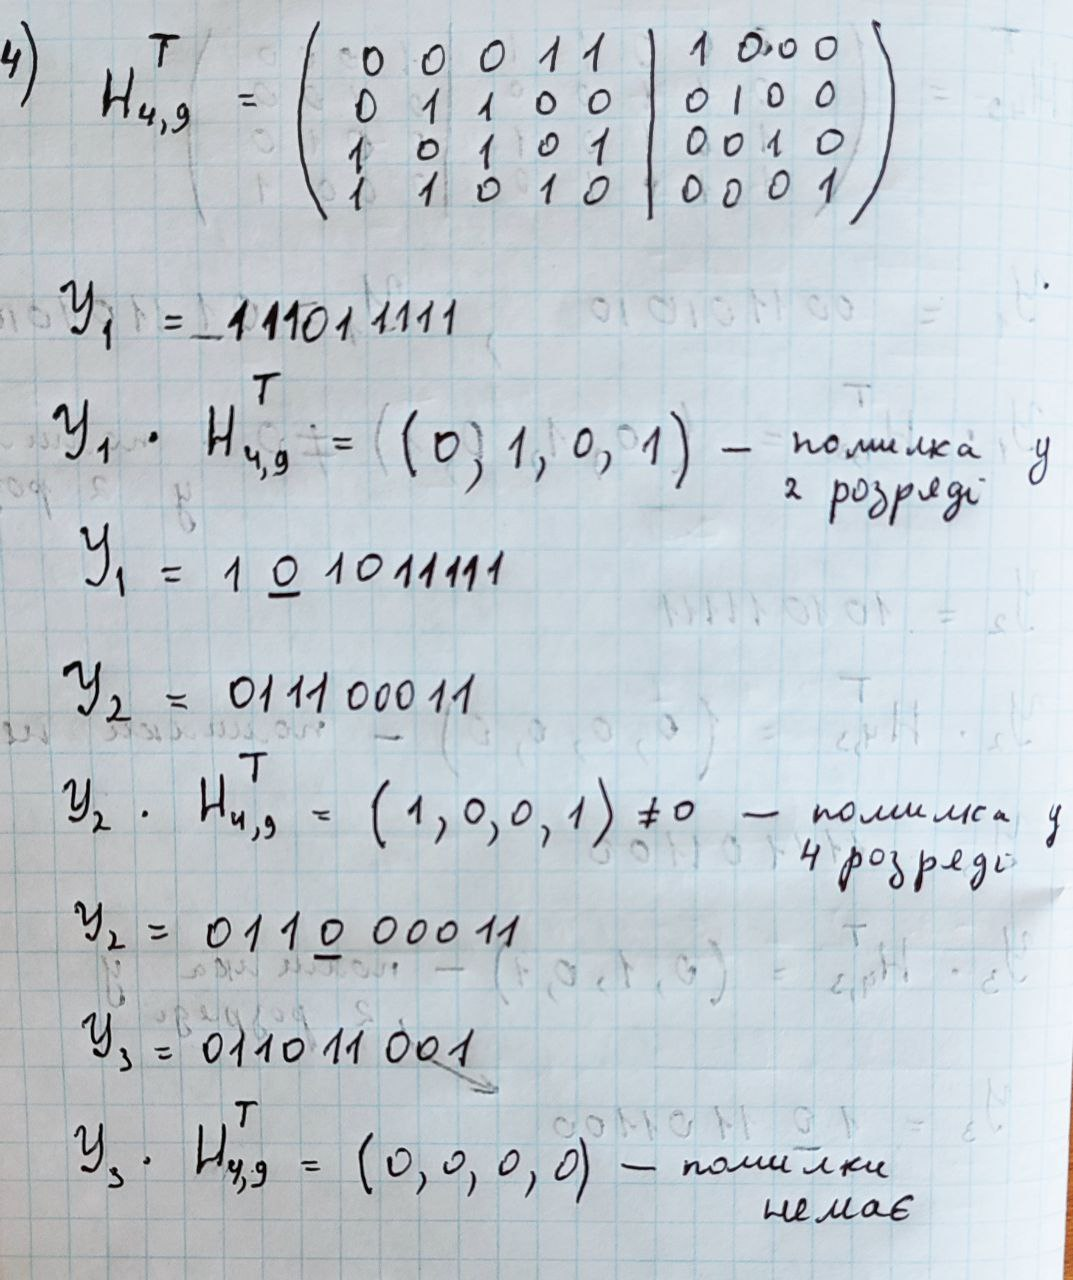 4) H₄,₉ᵀ = ( 0 0 0 1 1 | 1 0 0 0
0 1 1 0 0 | 0 1 0 0
1 0 1 0 1 | 0 0 1 0
1 1 0 1 0 | 0 0 0 1 )
У₁ = 111011111
У₁ · H₄,₉ᵀ = (0, 1, 0, 1) — помилка у
2 розряді
У₁ = 1 0 1011111
У₂ = 011100011
У₂ · H₄,₉ᵀ = (1, 0, 0, 1) ≠ 0 — помилка у
4 розряді
У₂ = 011 0 00011
У₃ = 011011001
У₃ · H₄,₉ᵀ = (0, 0, 0, 0) — помилки
немає